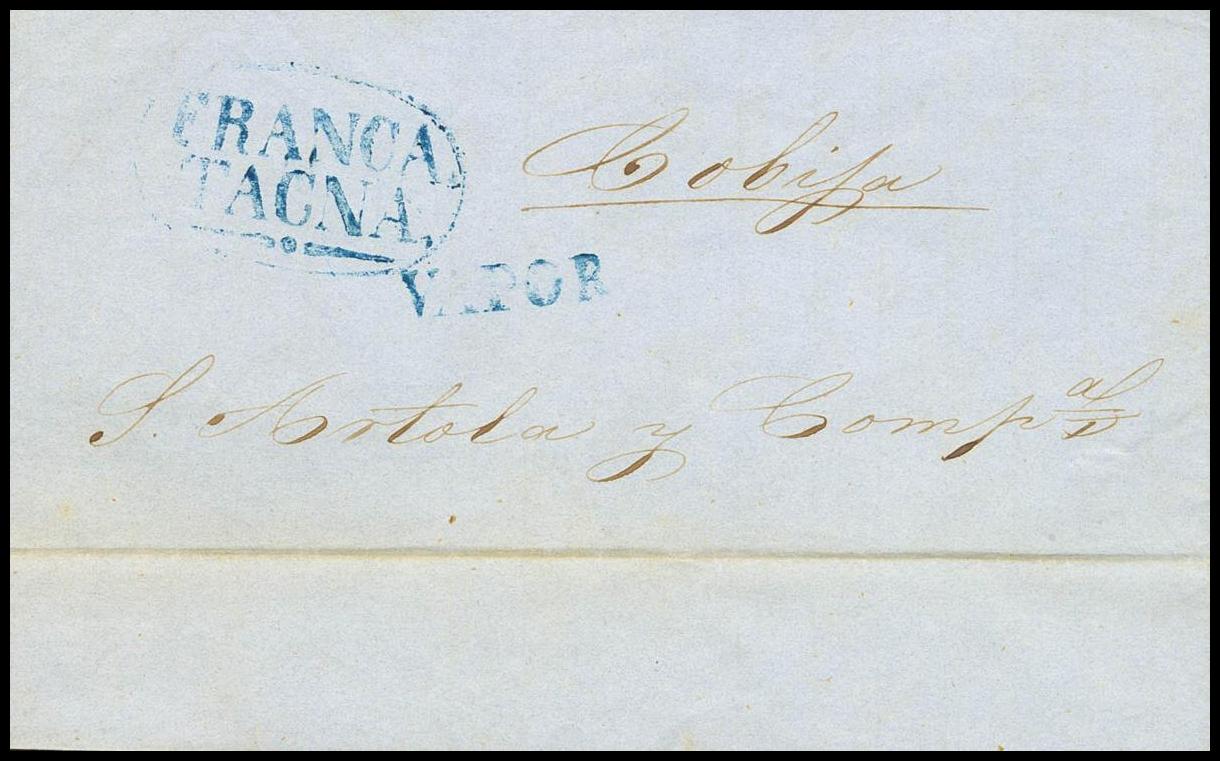 FRANCA.
TACNA.
VAPOR
Cobija
S. Artola y Comp